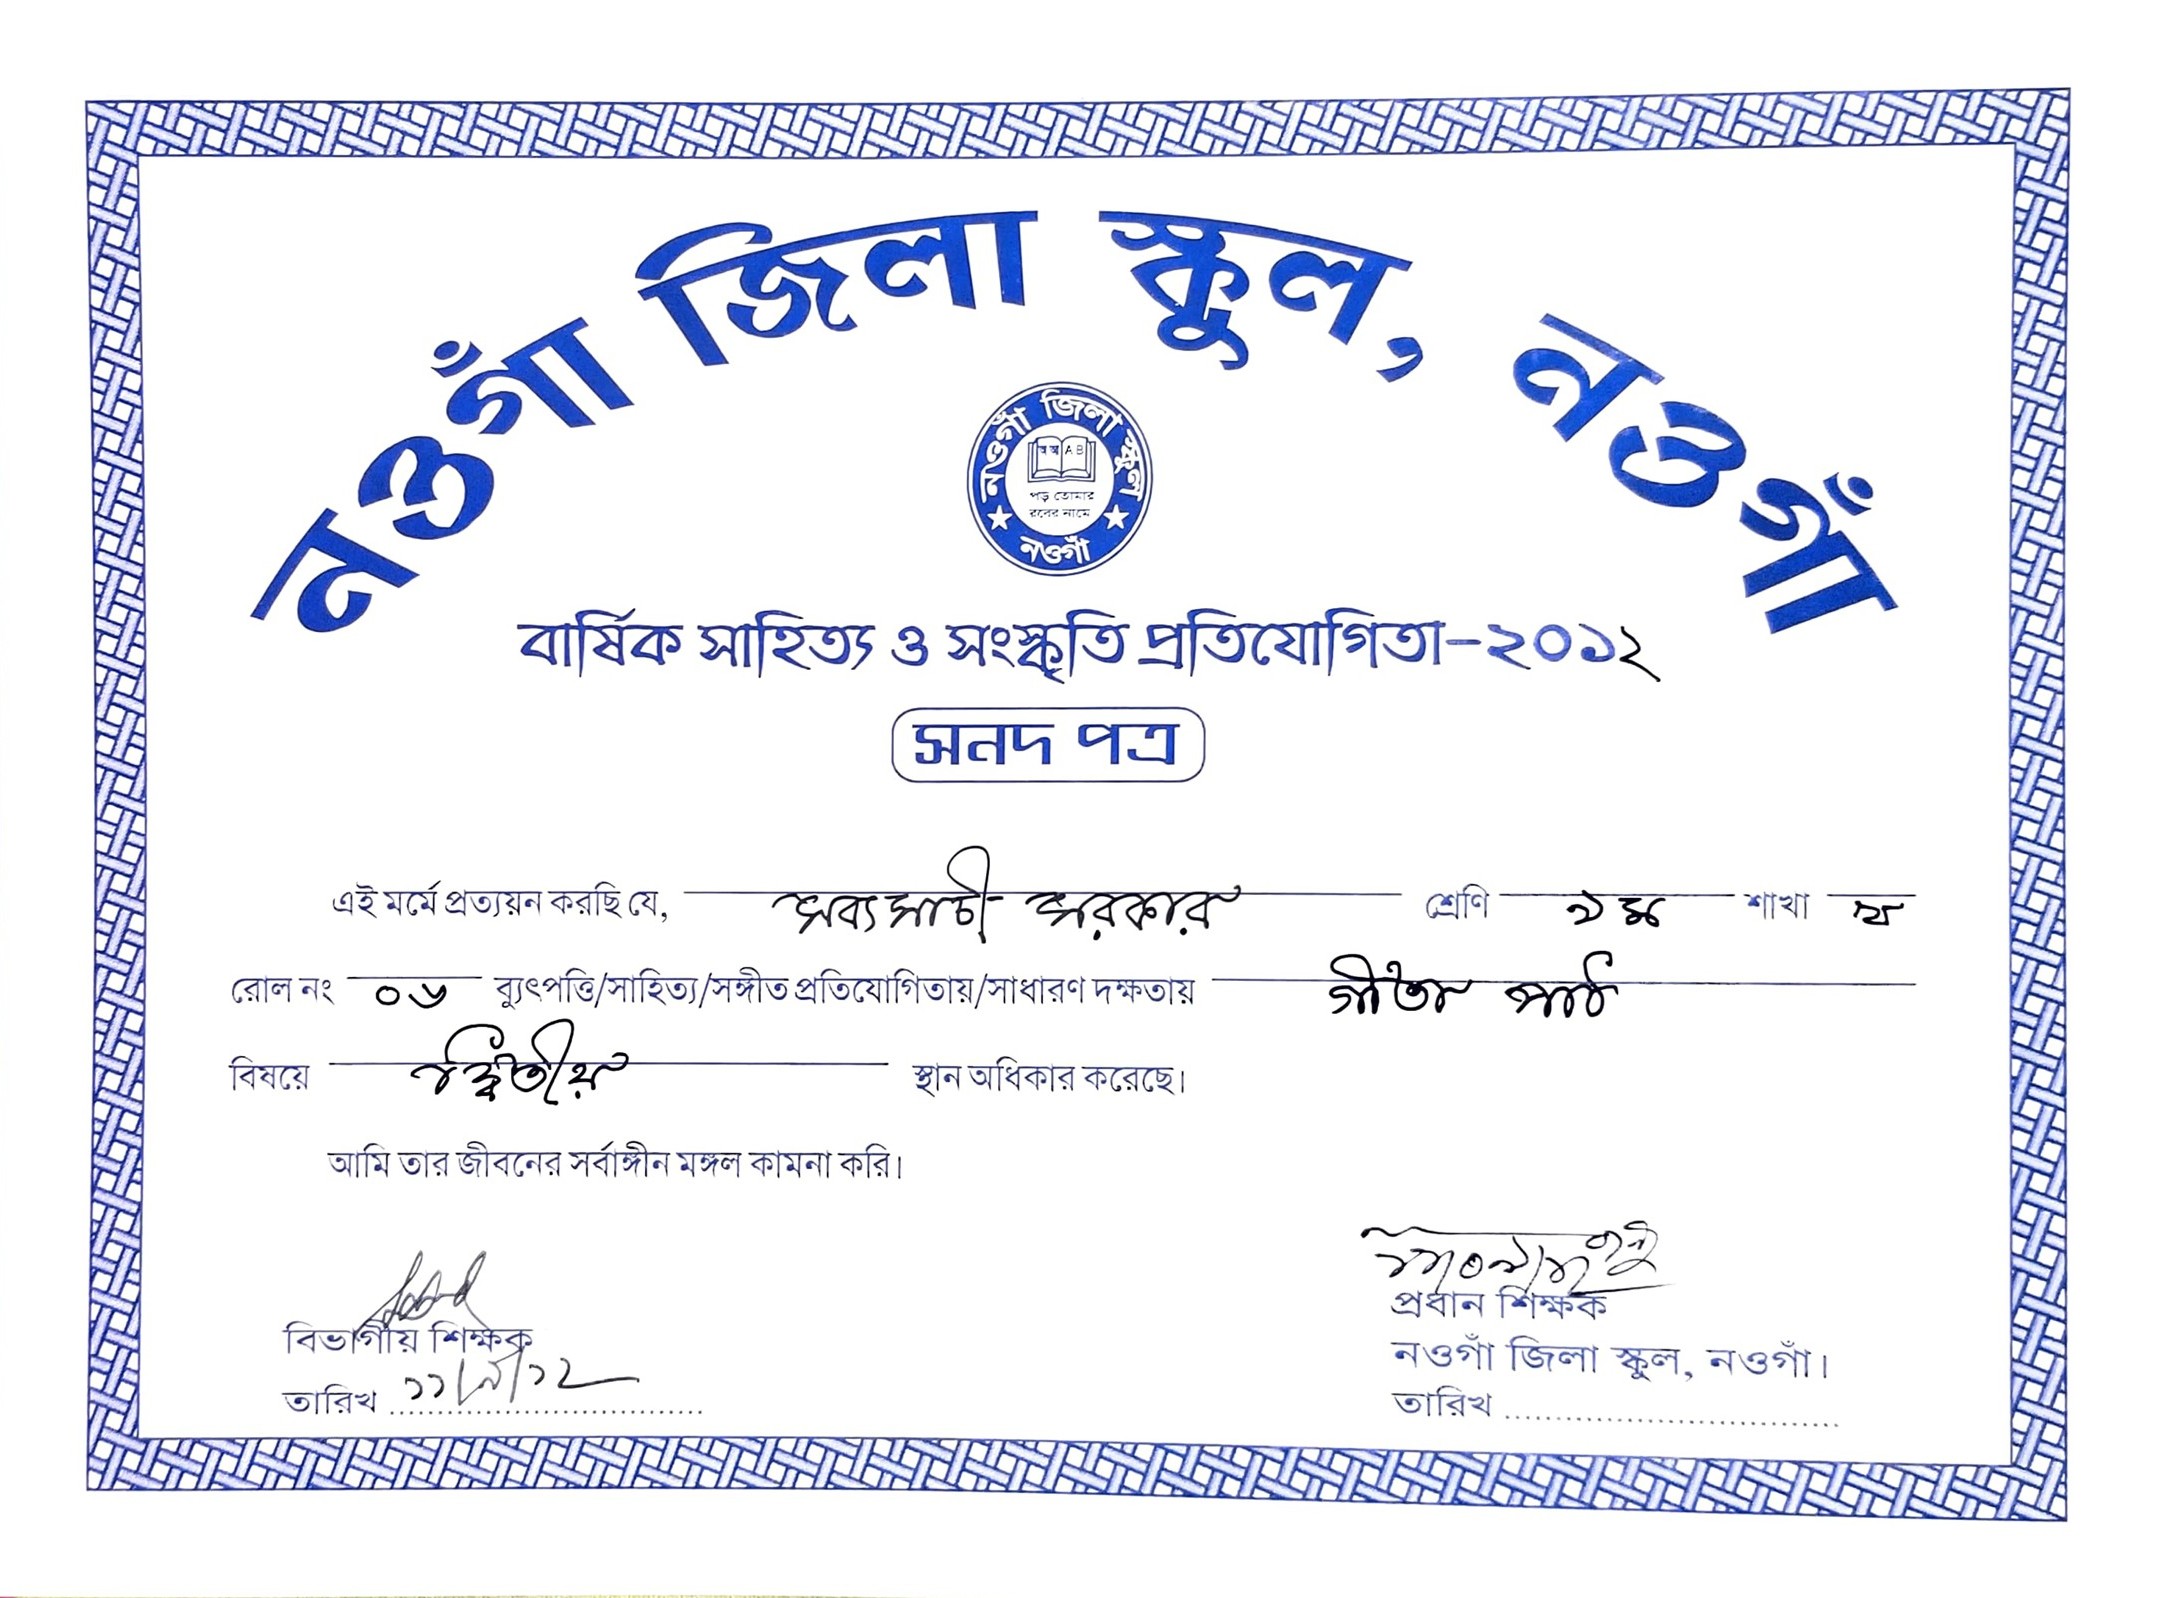 নওগাঁ জিলা স্কুল, নওগাঁ
নওগাঁ জিলা স্কুল
অ আ A B
পড় তোমার
রবের নামে
নওগাঁ
বার্ষিক সাহিত্য ও সংস্কৃতি প্রতিযোগিতা-২০১২
সনদ পত্র
এই মর্মে প্রত্যয়ন করছি যে, সব্যসাচী সরকার শ্রেণি ৯ম শাখা খ
রোল নং ০৬ ব্যুৎপত্তি/সাহিত্য/সঙ্গীত প্রতিযোগিতায়/সাধারণ দক্ষতায় গীতা পাঠ
বিষয়ে দ্বিতীয় স্থান অধিকার করেছে।
আমি তার জীবনের সর্বাঙ্গীন মঙ্গল কামনা করি।
বিভাগীয় শিক্ষক
তারিখ
প্রধান শিক্ষক
নওগাঁ জিলা স্কুল, নওগাঁ।
তারিখ